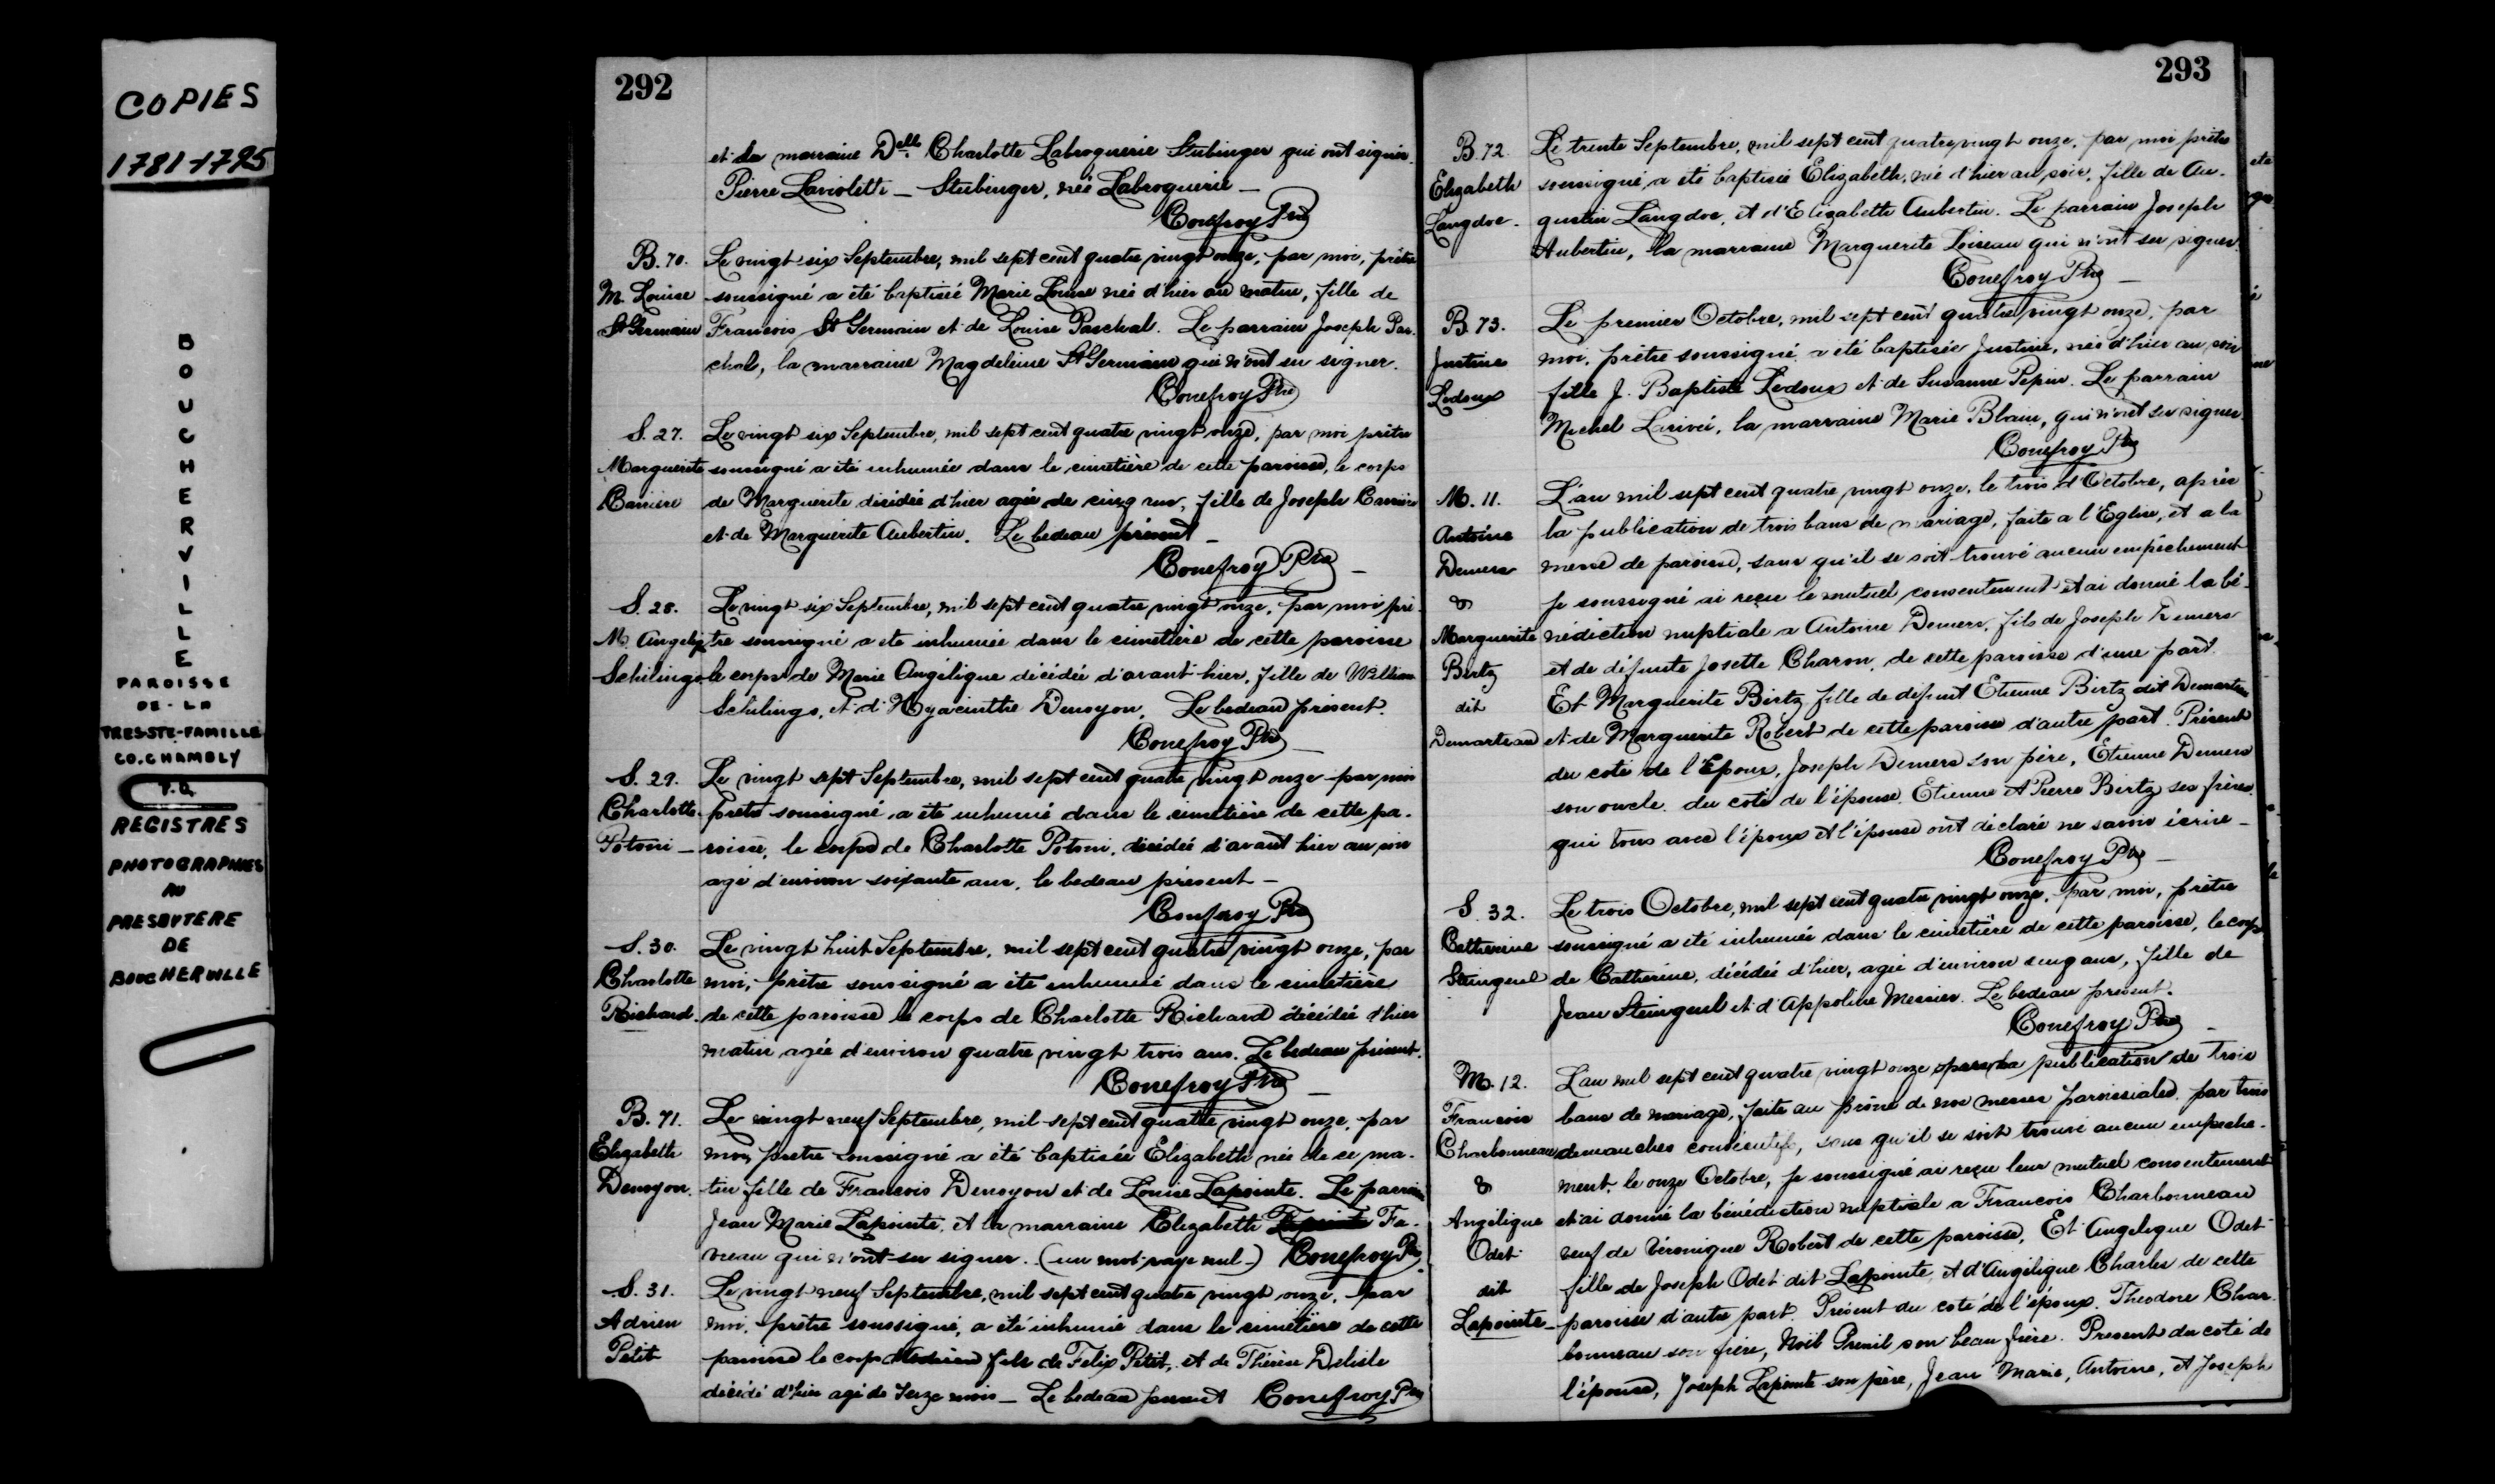 COPIES
1781-1795
BOUCHERVILLE
PAROISSE
DE-LA
TRES-STE-FAMILLE
CO. CHAMBLY
P.Q.
REGISTRES
PHOTOGRAPHIES
AU
PRESBYTERE
DE
BOUCHERVILLE
292
et la marraine Delle Charlotte Labroquerie Stubinger qui ont signés.
Pierre Laviolette — Stubinger, née Labroquerie —
Conefroy Ptre
B. 70. Le vingt six Septembre, mil sept cent quatre vingt onze, par moi, prêtre
M. Louise soussigné a été baptisée Marie Louise née d'hier au matin, fille de
St Germain Francois St Germain et de Louise Paschal. Le parrain Joseph Pas-
chal, la marraine Magdeleine St Germain qui n'ont su signer.
Conefroy Ptre
S. 27. Le vingt six Septembre, mil sept cent quatre vingt onze, par moi prêtre
Marguerite soussigné a été inhumée dans le cimetière de cette paroisse, le corps
Carriere de Marguerite décédée d'hier agée de cinq ans, fille de Joseph Carriere
et de Marguerite Aubertin. Le bedeau présent —
Conefroy Ptre —
S. 28. Le vingt six Septembre, mil sept cent quatre vingt onze, par moi prê-
M. Angeliq. tre soussigné a été inhumée dans le cimetière de cette paroisse
Schilings le corps de Marie Angélique décédée d'avant hier, fille de William
Schilings, et d'Hyacinthe Denoyon. Le bedeau présent.
Conefroy Ptre —
S. 29. Le vingt sept Septembre, mil sept cent quatre vingt onze par moi
Charlotte prêtre soussigné a été inhumé dans le cimetière de cette pa-
Potoni — roisse, le corps de Charlotte Potoni, décédée d'avant hier au soir
agé d'environ soixante ans, le bedeau présent —
Conefroy Ptre
S. 30. Le vingt huit Septembre, mil sept cent quatre vingt onze, par
Charlotte moi, prêtre soussigné a été inhumée dans le cimetière
Richard. de cette paroisse le corps de Charlotte Richard décédée d'hier
matin agée d'environ quatre vingt trois ans. Le bedeau présent.
Conefroy Ptre —
B. 71. Le vingt neuf Septembre, mil sept cent quatre vingt onze, par
Elizabeth moi, prêtre soussigné a été baptisée Elizabeth née de ce ma-
Denoyon. tin fille de Francois Denoyon et de Louise Lapointe. Le parrain
Jean Marie Lapointe, et la marraine Elizabeth Lapointe Fa-
vreau qui n'ont su signer. (un mot rayé nul —) Conefroy Ptre
S. 31. Le vingt neuf Septembre, mil sept cent quatre vingt onze, par
Adrien moi, prêtre soussigné, a été inhumé dans le cimetière de cette
Petit paroisse le corps d'Adrien fils de Felix Petit, et de Thérèse Delisle
décédé d'hier agé de seize mois — Le bedeau présent Conefroy Ptre
293
B. 72. Le trente Septembre, mil sept cent quatre vingt onze, par moi prêtre
Elizabeth soussigné, a été baptisée Elizabeth, née d'hier au soir, fille de Au-
Langdoc — gustin Langdoc, et d'Elizabeth Aubertin. Le parrain Joseph
Aubertin, la marraine Marguerite Loiseau qui n'ont su signer.
Conefroy Ptre —
B. 73. Le premier Octobre, mil sept cent quatre vingt onze, par
Justine moi, prêtre soussigné a été baptisée Justine, née d'hier au soir
Ledoux fille J. Baptiste Ledoux et de Susanne Pepin. Le parrain
Michel Larivée, la marraine Marie Blain, qui n'ont su signer.
Conefroy Ptre
M. 11. L'an mil sept cent quatre vingt onze, le trois d'Octobre, après
Antoine la publication de trois bans de mariage, faite a l'Eglise, et a la
Demers messe de paroisse, sans qu'il se soit trouvé aucun empêchement
& Je soussigné ai reçu le mutuel consentement et ai donné la bé-
Marguerite nédiction nuptiale a Antoine Demers, fils de Joseph Demers
Birtz et de défunte Josette Charon, de cette paroisse d'une part.
dit Et Marguerite Birtz fille de défunt Etienne Birtz dit Demarteau
Demarteau et de Marguerite Robert de cette paroisse d'autre part. Présent
du coté de l'Epoux, Joseph Demers son père, Etienne Demers
son oncle. du coté de l'épouse, Etienne et Pierre Birtz ses frères
qui tous avec l'époux et l'épouse ont déclaré ne savoir écrire —
Conefroy Ptre —
S. 32. Le trois Octobre, mil sept cent quatre vingt onze, par moi, prêtre
Catherine soussigné a été inhumée dans le cimetière de cette paroisse, le corps
Steinguel de Catherine, décédée d'hier, agée d'environ cinq ans, fille de
Jean Steinguel et d'Appoline Messier. Le bedeau présent.
Conefroy Ptre —
M. 12. L'an mil sept cent quatre vingt onze après la publication de trois
Francois bans de mariage, faite au prône de nos messes paroissiales, par trois
Charbonneau demanches consécutifs, sans qu'il se soit trouvé aucun empeche-
& ment, le onze Octobre, Je soussigné ai reçu leur mutuel consentement
Angélique et ai donné la bénédiction nuptiale a Francois Charbonneau
Odet veuf de Véronique Robert de cette paroisse, Et Angelique Odet
dit fille de Joseph Odet dit Lapointe, et d'Angélique Charles de cette
Lapointe — paroisse d'autre part. Présent du coté de l'époux, Theodore Char-
bonneau son frère, Noël Prenil son beau frère. Présent du coté de
l'épouse, Joseph Lapointe son père, Jean Marie, Antoine, et Joseph